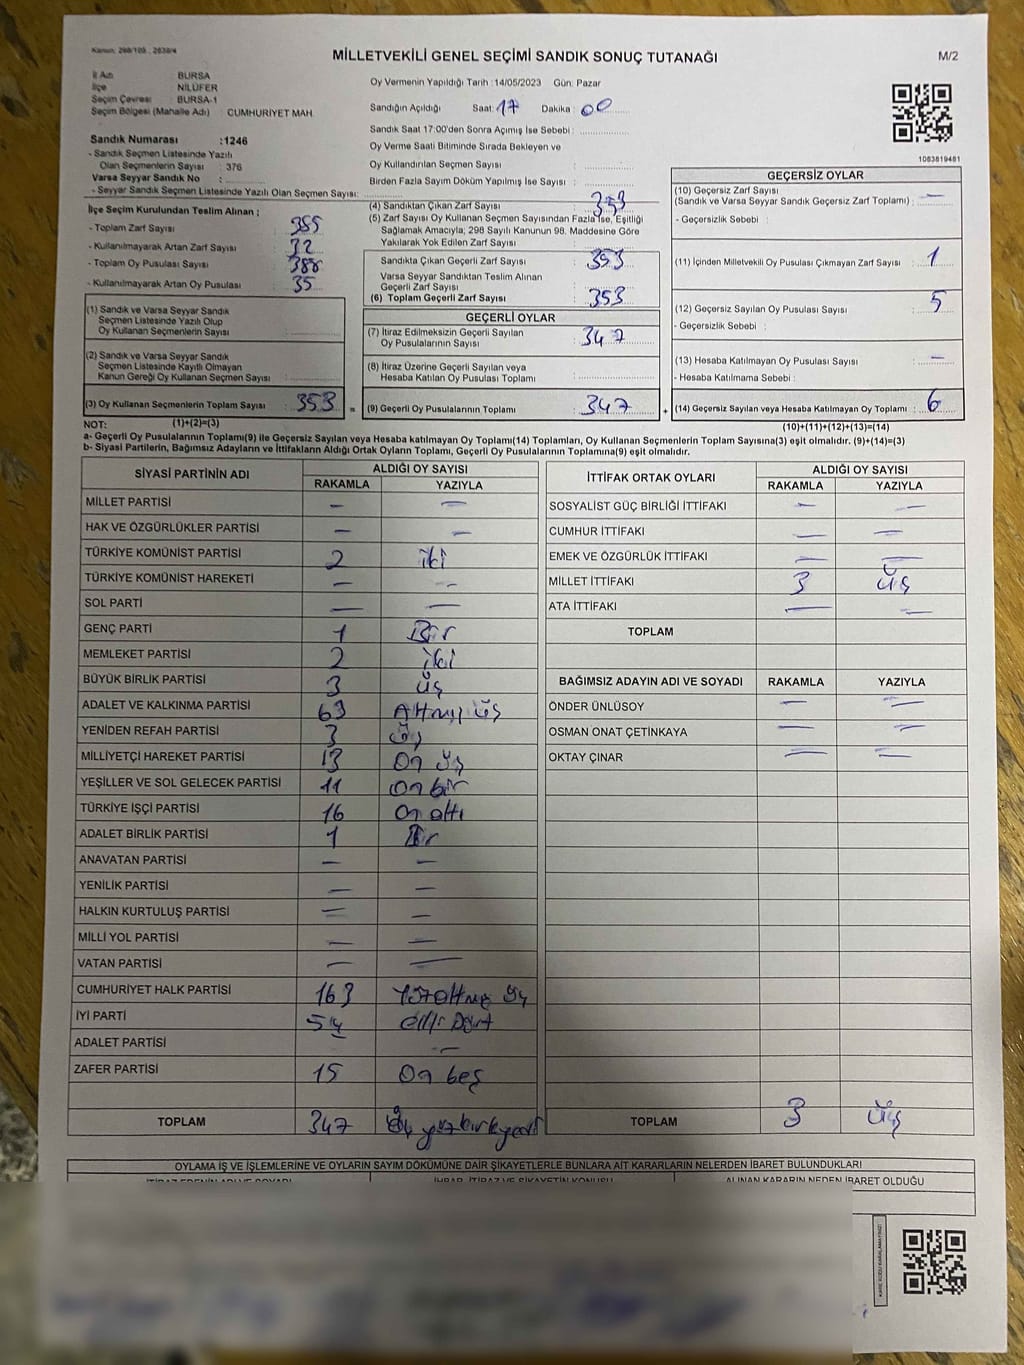 Kanun: 298/105 ; 2839/4
MİLLETVEKİLİ GENEL SEÇİMİ SANDIK SONUÇ TUTANAĞI
M/2
İl Adı : BURSA
İlçe : NİLÜFER
Seçim Çevresi : BURSA-1
Seçim Bölgesi (Mahalle Adı) : CUMHURİYET MAH
Sandık Numarası :1246
- Sandık Seçmen Listesinde Yazılı
Olan Seçmenlerin Sayısı : 376
Varsa Seyyar Sandık No :
- Seyyar Sandık Seçmen Listesinde Yazılı Olan Seçmen Sayısı:
Oy Vermenin Yapıldığı Tarih :14/05/2023 Gün: Pazar
Sandığın Açıldığı Saat: 17 Dakika : 00
Sandık Saat 17:00'den Sonra Açımış İse Sebebi :
Oy Verme Saati Bitiminde Sırada Bekleyen ve
Oy Kullandırılan Seçmen Sayısı :
Birden Fazla Sayım Döküm Yapılmış İse Sayısı :
1083819481
İlçe Seçim Kurulundan Teslim Alınan ;
- Toplam Zarf Sayısı : 385
- Kullanılmayarak Artan Zarf Sayısı : 32
- Toplam Oy Pusulası Sayısı : 388
- Kullanılmayarak Artan Oy Pusulası : 35
(1) Sandık ve Varsa Seyyar Sandık
Seçmen Listesinde Yazılı Olup
Oy Kullanan Seçmenlerin Sayısı :
(2) Sandık ve Varsa Seyyar Sandık
Seçmen Listesinde Kayıtlı Olmayan
Kanun Gereği Oy Kullanan Seçmen Sayısı :
(3) Oy Kullanan Seçmenlerin Toplam Sayısı : 353 =
(1)+(2)=(3)
(4) Sandıktan Çıkan Zarf Sayısı : 353
(5) Zarf Sayısı Oy Kullanan Seçmen Sayısından Fazla İse, Eşitliği
Sağlamak Amacıyla; 298 Sayılı Kanunun 98. Maddesine Göre
Yakılarak Yok Edilen Zarf Sayısı :
Sandıkta Çıkan Geçerli Zarf Sayısı : 353
Varsa Seyyar Sandıktan Teslim Alınan
Geçerli Zarf Sayısı :
(6) Toplam Geçerli Zarf Sayısı : 353
GEÇERLİ OYLAR
(7) İtiraz Edilmeksizin Geçerli Sayılan
Oy Pusulalarının Sayısı : 347
(8) İtiraz Üzerine Geçerli Sayılan veya
Hesaba Katılan Oy Pusulası Toplamı :
(9) Geçerli Oy Pusulalarının Toplamı : 347 +
GEÇERSİZ OYLAR
(10) Geçersiz Zarf Sayısı
(Sandık ve Varsa Seyyar Sandık Geçersiz Zarf Toplamı) : —
- Geçersizlik Sebebi :
(11) İçinden Milletvekili Oy Pusulası Çıkmayan Zarf Sayısı : 1
(12) Geçersiz Sayılan Oy Pusulası Sayısı : 5
- Geçersizlik Sebebi :
(13) Hesaba Katılmayan Oy Pusulası Sayısı : —
- Hesaba Katılmama Sebebi :
(14) Geçersiz Sayılan veya Hesaba Katılmayan Oy Toplamı : 6
(10)+(11)+(12)+(13)=(14)
NOT:
a- Geçerli Oy Pusulalarının Toplamı(9) ile Geçersiz Sayılan veya Hesaba katılmayan Oy Toplamı(14) Toplamları, Oy Kullanan Seçmenlerin Toplam Sayısına(3) eşit olmalıdır. (9)+(14)=(3)
b- Siyasi Partilerin, Bağımsız Adayların ve İttifakların Aldığı Ortak Oyların Toplamı, Geçerli Oy Pusulalarının Toplamına(9) eşit olmalıdır.
SİYASİ PARTİNİN ADI ALDIĞI OY SAYISI
RAKAMLA YAZIYLA
MİLLET PARTİSİ — —
HAK VE ÖZGÜRLÜKLER PARTİSİ — —
TÜRKİYE KOMÜNİST PARTİSİ 2 iki
TÜRKİYE KOMÜNİST HAREKETİ — —
SOL PARTİ — —
GENÇ PARTİ 1 Bir
MEMLEKET PARTİSİ 2 iki
BÜYÜK BİRLİK PARTİSİ 3 üç
ADALET VE KALKINMA PARTİSİ 63 Altmış üç
YENİDEN REFAH PARTİSİ 3 üç
MİLLİYETÇİ HAREKET PARTİSİ 13 On üç
YEŞİLLER VE SOL GELECEK PARTİSİ 11 On bir
TÜRKİYE İŞÇİ PARTİSİ 16 On altı
ADALET BİRLİK PARTİSİ 1 Bir
ANAVATAN PARTİSİ — —
YENİLİK PARTİSİ — —
HALKIN KURTULUŞ PARTİSİ — —
MİLLİ YOL PARTİSİ — —
VATAN PARTİSİ — —
CUMHURİYET HALK PARTİSİ 163 Yüzaltmış üç
İYİ PARTİ 54 elli Dört
ADALET PARTİSİ —
ZAFER PARTİSİ 15 On beş
TOPLAM 347 üç yüz kırk yedi
İTTİFAK ORTAK OYLARI ALDIĞI OY SAYISI
RAKAMLA YAZIYLA
SOSYALİST GÜÇ BİRLİĞİ İTTİFAKI — —
CUMHUR İTTİFAKI — —
EMEK VE ÖZGÜRLÜK İTTİFAKI — —
MİLLET İTTİFAKI 3 üç
ATA İTTİFAKI — —
TOPLAM
BAĞIMSIZ ADAYIN ADI VE SOYADI RAKAMLA YAZIYLA
ÖNDER ÜNLÜSOY — —
OSMAN ONAT ÇETİNKAYA — —
OKTAY ÇINAR — —
TOPLAM 3 üç
OYLAMA İŞ VE İŞLEMLERİNE VE OYLARIN SAYIM DÖKÜMÜNE DAİR ŞİKAYETLERLE BUNLARA AİT KARARLARIN NELERDEN İBARET BULUNDUKLARI
İTİRAZ EDENİN ADI VE SOYADI İHBAR, İTİRAZ VE ŞİKAYETİN KONUSU ALINAN KARARIN NEDEN İBARET OLDUĞU